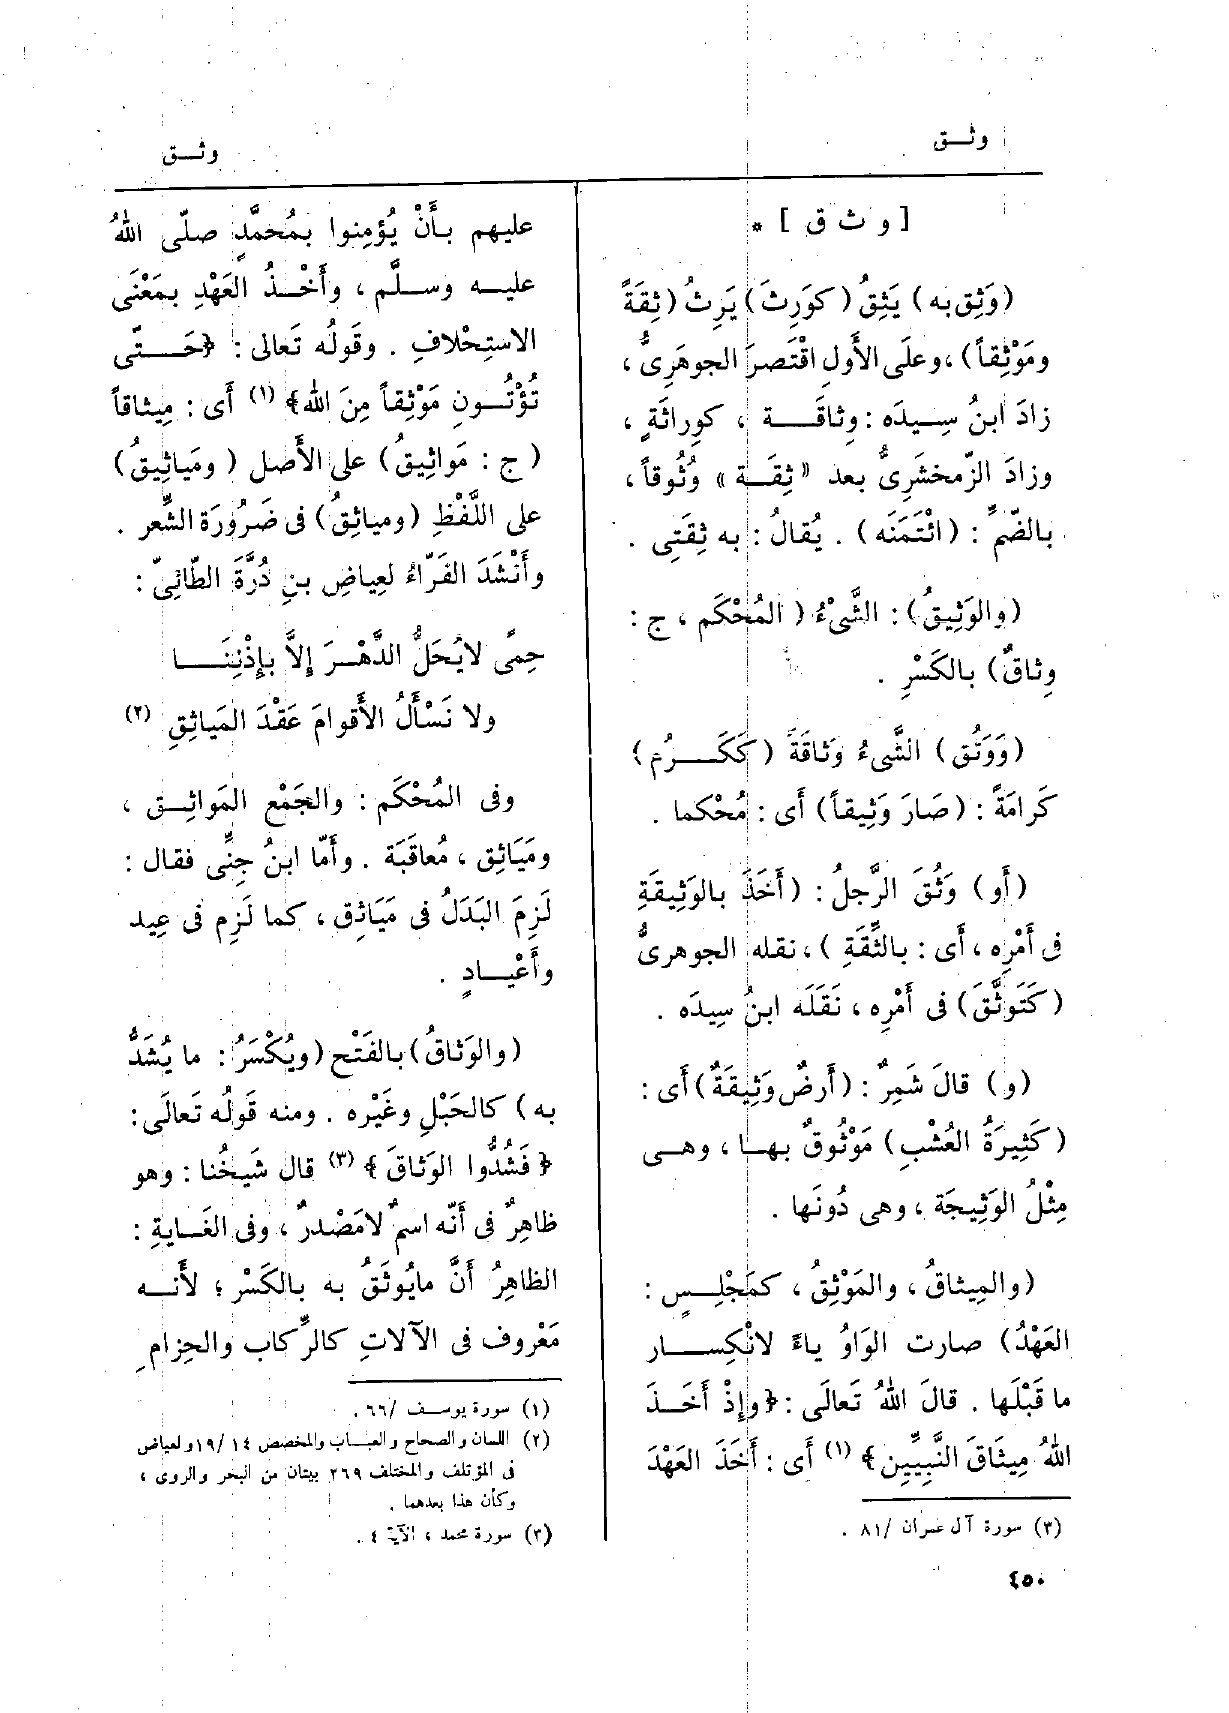 وثـق
وثـق
[ و ث ق ] *
(وَثِق به) يَثِقُ (كوَرِثَ) يَرِثُ (ثِقَةً
ومَوْثِقاً)، وعلَى الأَولِ اقْتَصرَ الجوهَرِىُّ،
زادَ ابنُ سِـيدَه : وِثاقَـــة ، كوِراثَةٍ ،
وزادَ الزّمخشَرِىُّ بعد «ثِقَـة» وُثُوقاً،
بالضّمِّ : (ائْتَمَنَه) . يُقالُ : به ثِقَتِى .
(والوَثِيقُ) : الشَّىْءُ (المُحْكَم ، ج :
وِثاقٌ) بالكَسْرِ .
(وَوَثُق) الشَّىءُ وَثاقَةً (كَكَـــرُم)
كَرامَةً : (صَارَ وَثِيقاً) أَى : مُحْكما .
(أَو) وَثُقَ الرَّجلُ : (أَخَذَ بالوَثِيقَةِ
فى أَمْرِه ، أَى : بالثِّقَةِ )، نقله الجوهرىُّ
(كَتَوثَّقَ) فى أَمْرِه ، نَقَلَه ابنُ سِيدَه .
(و) قالَ شَمِرٌ : (أَرضٌ وَثِيقَةٌ) أَى :
(كَثِيرَةُ العُشْبِ) مَوْثُوقٌ بهـا ، وهـى
مِثْلُ الوَثِيجَة ، وهى دُونَها .
(والمِيثاقُ ، والمَوْثِقُ ، كمَجْلِـسٍ :
العَهْدُ) صارت الوَاوُ ياءً لانْكِســـار
ما قَبْلَها . قالَ اللهُ تَعالَى : ﴿وإِذْ أَخَـذَ
اللهُ مِيثَاقَ النَّبِيِّين﴾ (١) أَى : أَخَذَ العَهْدَ
(٣) سورة آل عمران /٨١ .
٤٥٠
عليهم بـأَنْ يُؤمِنوا بمُحمَّدٍ صلّى اللهُ
عليـه وسـلَّم ، وأَخْـذُ العَهْدِ بمَعْنَى
الاستِحْلافِ . وقَولُه تَعالى : ﴿حَـــتّى
تُؤْتُـونِ مَوْثِقاً مِنَ اللهِ﴾ (١) أَى : مِيثاقاً
(ج : مَواثِيقُ) على الأَصل (ومَياثِيقُ)
على اللَّفْظِ (ومياثِقُ) فى ضَرُورَة الشِّعر .
وأَنْشَدَ الفَرّاءُ لعِياضِ بنِ دُرَّةَ الطّائِىّ :
حِمًى لايُحَلُّ الدَّهْـرَ إِلاَّ بإِذْنِنَـــا
ولا نَسْأَلُ الأَقوامَ عَقْدَ المَياثِقِ (٢)
وفى المُحْكَم : والجَمْع المَواثِـق ،
ومَيَاثِق ، مُعاقَبَة . وأَمّا ابنُ جِنِّى فقال :
لَزِمَ البَدَلُ فى مَيَاثِق ، كما لَزِم فى عِيد
وأَعْيـادٍ .
(والوَثاقُ) بالفَتْح (ويُكْسَرُ : ما يُشَدُّ
به) كالحَبْلِ وغَيْره . ومنه قَولُه تَعالَى :
﴿فَشُدُّوا الوَثاقَ﴾ (٣) قال شَيخُنا : وهو
ظاهِرٌ فى أَنّه اسمٌ لامَصْدرٌ ، وفى الغَـايةِ :
الظاهِرُ أَنَّ مايُوثَقُ به بالكَسْر ؛ لأَنـه
مَعْروف فى الآلاتِ كالرِّكاب والحِزام
(١) سورة يوسـف /٦٦ .
(٢) اللسان والصحاح والعبـاب والمخصص ١٩/١٤ ولعياض
فى المؤتلف والمختلف ٢٦٩ بيتان من البحر والروى ،
وكأن هذا بعدهما .
(٣) سورة محمد ، الآية ٤ .